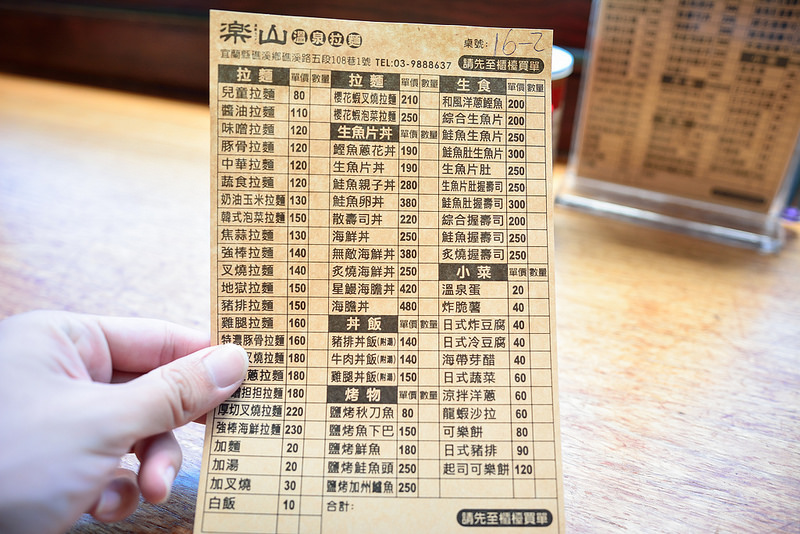 楽山溫泉拉麵
桌號: 16-2
宜蘭縣礁溪鄉礁溪路五段108巷1號 TEL:03-9888637 請先至櫃檯買單
拉麵 單價 數量
兒童拉麵 80
醬油拉麵 110
味噌拉麵 120
豚骨拉麵 120
中華拉麵 120
蔬食拉麵 120
奶油玉米拉麵 130
韓式泡菜拉麵 150
焦蒜拉麵 130
強棒拉麵 140
叉燒拉麵 140
地獄拉麵 150
豬排拉麵 150
雞腿拉麵 160
特濃豚骨拉麵 160
叉燒拉麵 180
蔥拉麵 180
擔担拉麵 180
厚切叉燒拉麵 220
強棒海鮮拉麵 230
加麵 20
加湯 20
加叉燒 30
白飯 10
拉麵 單價 數量
櫻花蝦叉燒拉麵 210
櫻花蝦泡菜拉麵 250
生魚片丼 單價 數量
鰹魚蔥花丼 190
生魚片丼 190
鮭魚親子丼 280
鮭魚卵丼 380
散壽司丼 220
海鮮丼 250
無敵海鮮丼 380
炙燒海鮮丼 250
星鰻海膽丼 420
海膽丼 480
丼飯 單價 數量
豬排丼飯(附湯) 140
牛肉丼飯(附湯) 140
雞腿丼飯(附湯) 150
烤物 單價 數量
鹽烤秋刀魚 80
鹽烤魚下巴 150
鹽烤鮮魚 180
鹽烤鮭魚頭 250
鹽烤加州鱸魚 250
合計:
生食 單價 數量
和風洋蔥鰹魚 200
綜合生魚片 200
鮭魚生魚片 250
鮭魚肚生魚片 300
生魚片肚 250
生魚片肚握壽司 250
鮭魚肚握壽司 300
綜合握壽司 200
鮭魚握壽司 250
炙燒握壽司 250
小菜 單價 數量
溫泉蛋 20
炸脆薯 40
日式炸豆腐 40
日式冷豆腐 40
海帶芽醋 40
日式蔬菜 60
涼拌洋蔥 60
龍蝦沙拉 60
可樂餅 80
日式豬排 90
起司可樂餅 120
請先至櫃檯買單